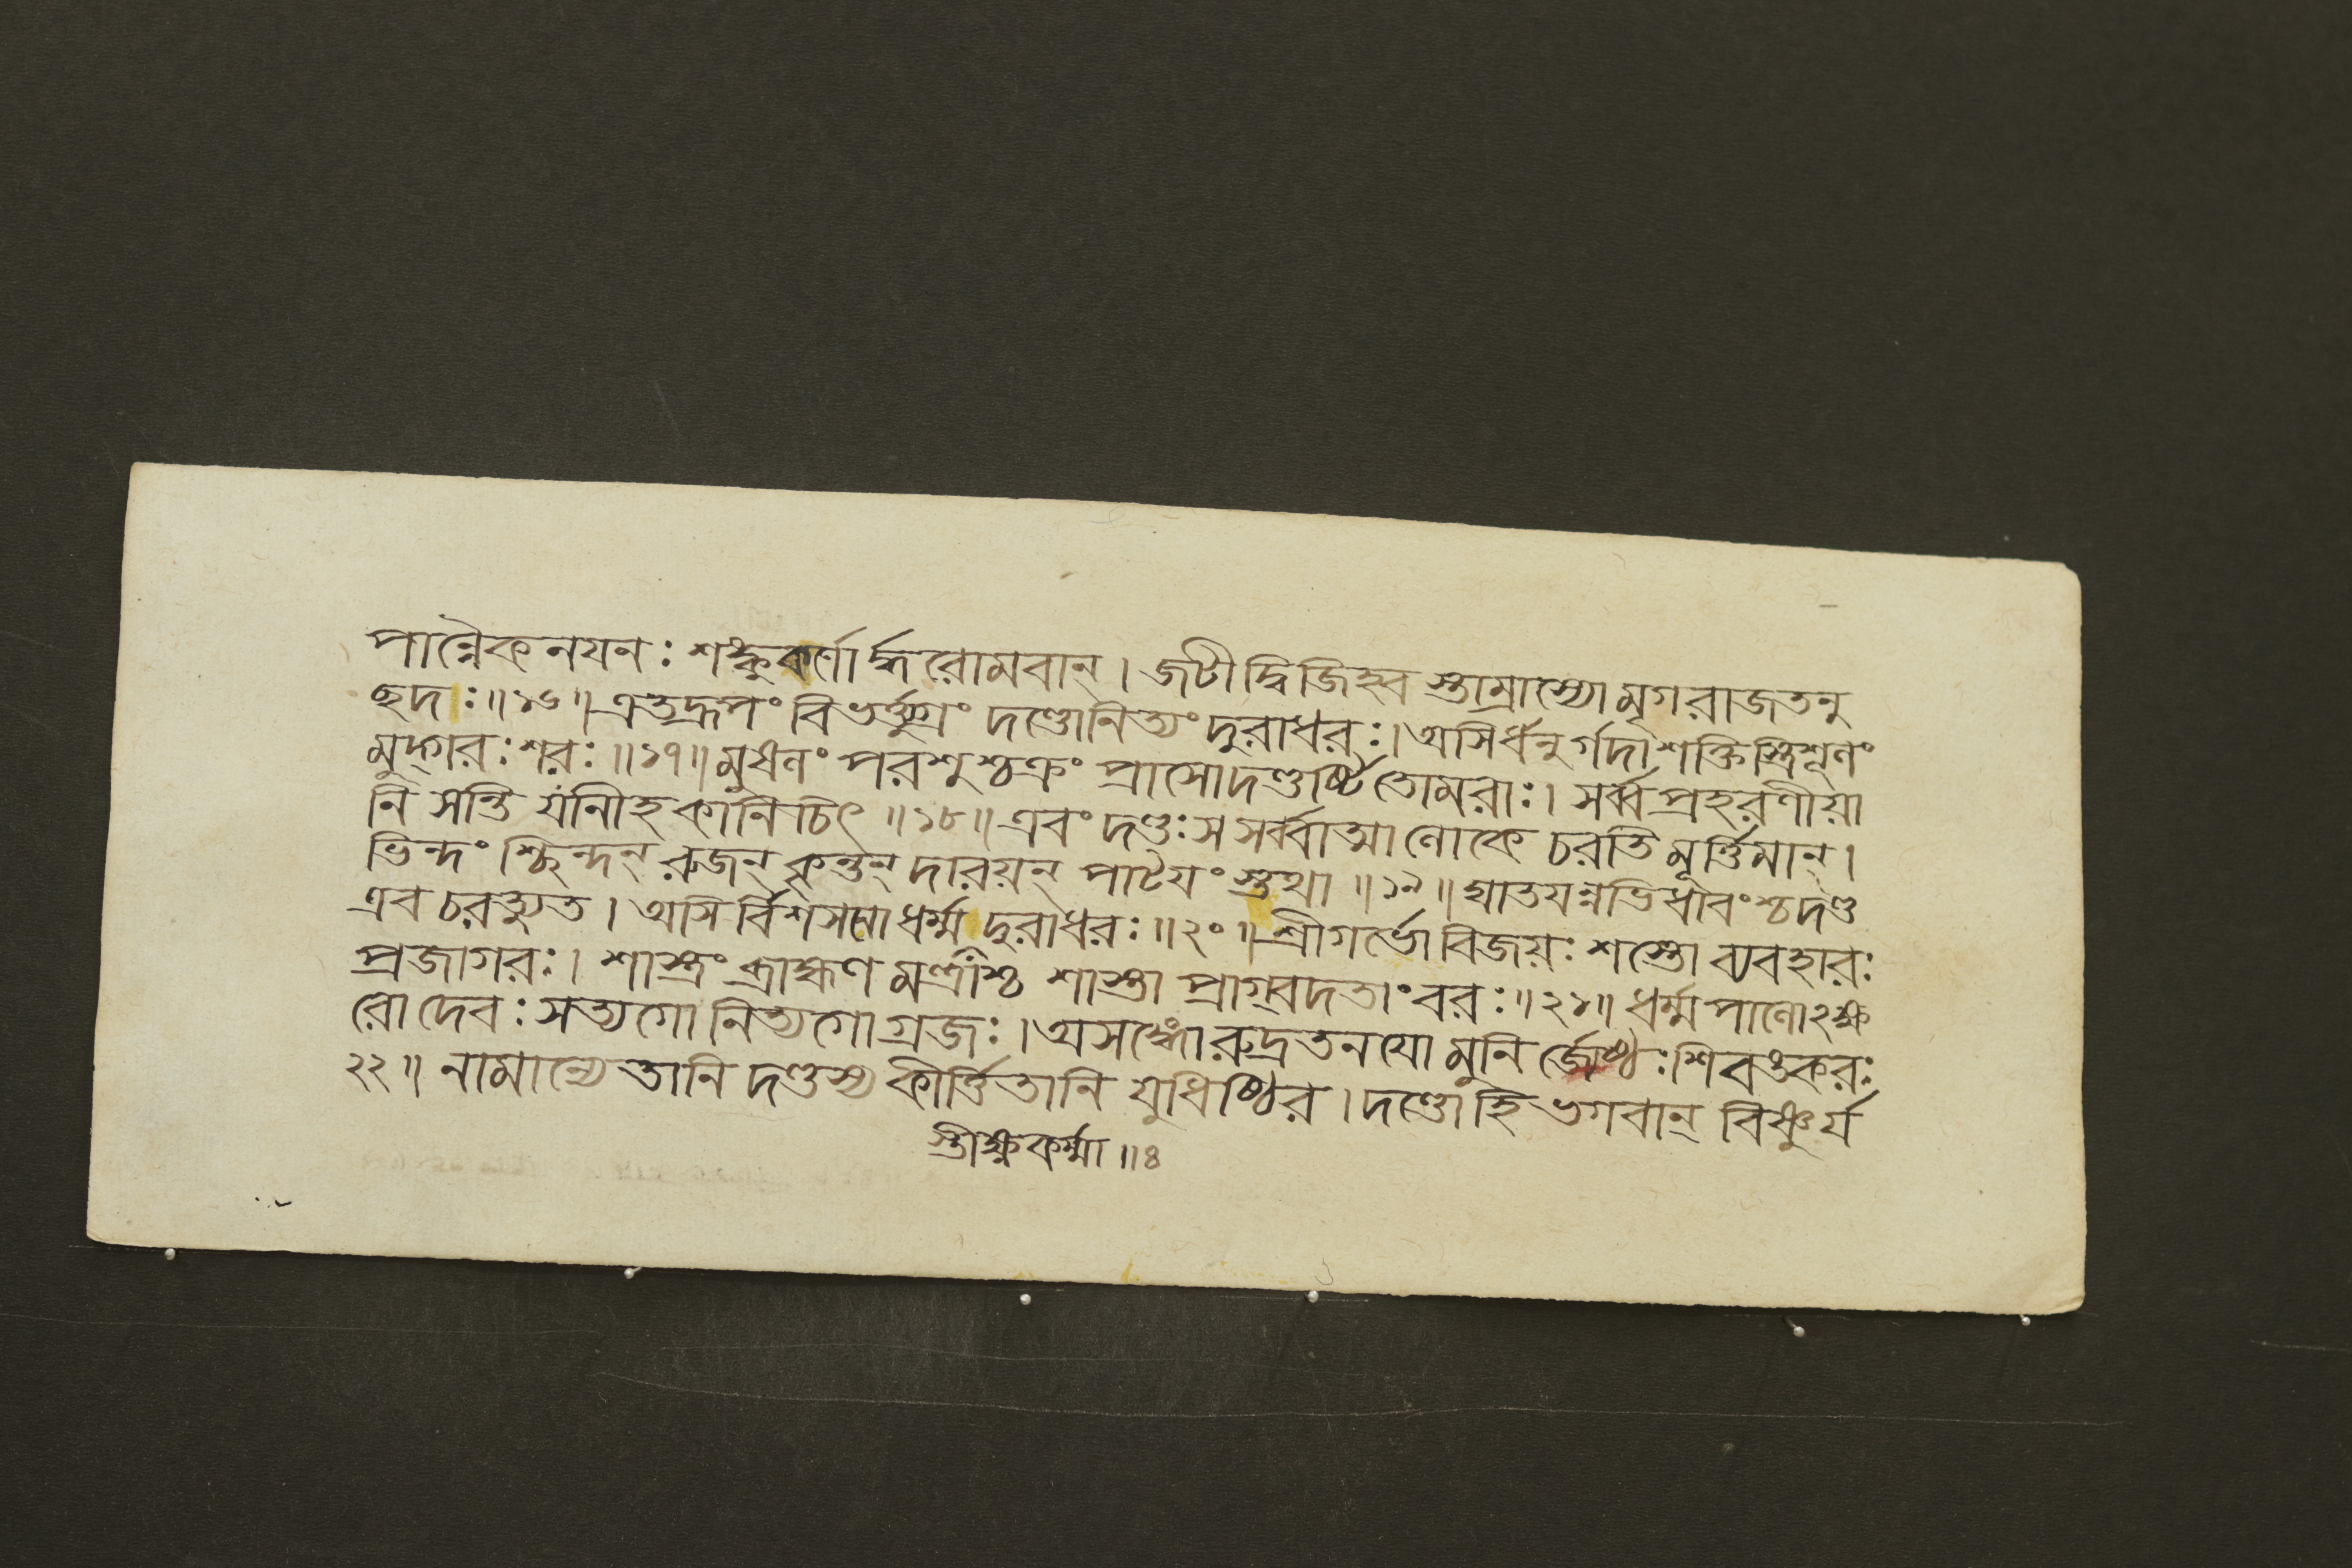 পান্নৈকনযনঃ শঙ্কুকর্ণোর্দ্ধরোমবান্। জটী দ্বিজিহ্ব স্তাম্রাস্যো মৃগরাজতনু
ছদঃ॥১৬॥এতদ্রূপং বিভর্ত্ত্যুগ্রং দণ্ডোনিত্যং দুরাধরঃ।অসির্ধনুর্গদা শক্তিস্ত্রিশূলং
মুদ্গরঃ শরঃ॥১৭॥মুষলং পরশুশ্চক্রং প্রাসোদণ্ডর্ষ্টিতোমরাঃ। সর্ব্বপ্রহরণীয়া
নি সন্তি যানীহ কানিচিৎ॥১৮॥এবং দণ্ডঃ স সর্ব্বাত্মা লোকে চরতি মূর্ত্তিমান্।
ভিন্দং শ্ছিন্দন্ রুজন্ কৃন্তন্ দারয়ন্ পাটযং স্তথা॥১৯॥ঘাতযন্নভিধাবংশ্চদণ্ড
এব চরত্যুত। অসি র্বিশসনো ধর্ম্ম দুরাধরঃ॥২০॥শ্রীগর্ভো বিজয়ঃ শস্তো ব্যবহারঃ
প্রজাগরঃ। শাস্ত্রং ব্রাহ্মণ মন্ত্রাশ্চ শাস্তা প্রাগ্বদতাং বরঃ॥২১॥ধর্ম্মপালো২ক্ষ
রো দেবঃ সত্যগো নিত্যগো গ্রজঃ।অসঙ্গো রুদ্রতনযো মুনি র্জ্যেষ্ঠঃ শিবঙ্করঃ
২২॥ নামান্যেতানি দণ্ডস্য কীর্ত্তিতানি যুধিষ্ঠির। দণ্ডো হি ভগবান্ বিষ্ণুর্য
স্তীক্ষ্ণকর্ম্মা॥৪